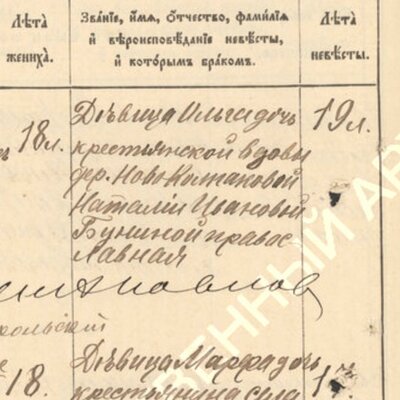 Лѣта
жениха.
Званіе, имя, отчество, фамилія
и вѣроисповѣданіе невѣсты,
и которымъ бракомъ.
Лѣта
невѣсты.
18 л.
Дѣвица Ольга дочь
крестьянской вдовы
дер. Ново
Наталіи Ивановой
Буниной правос-
лавная
19 л.
Павлов
18.
Дѣвица Марфа дочь
крестьянина села
17
ВЕННЫЙ АР